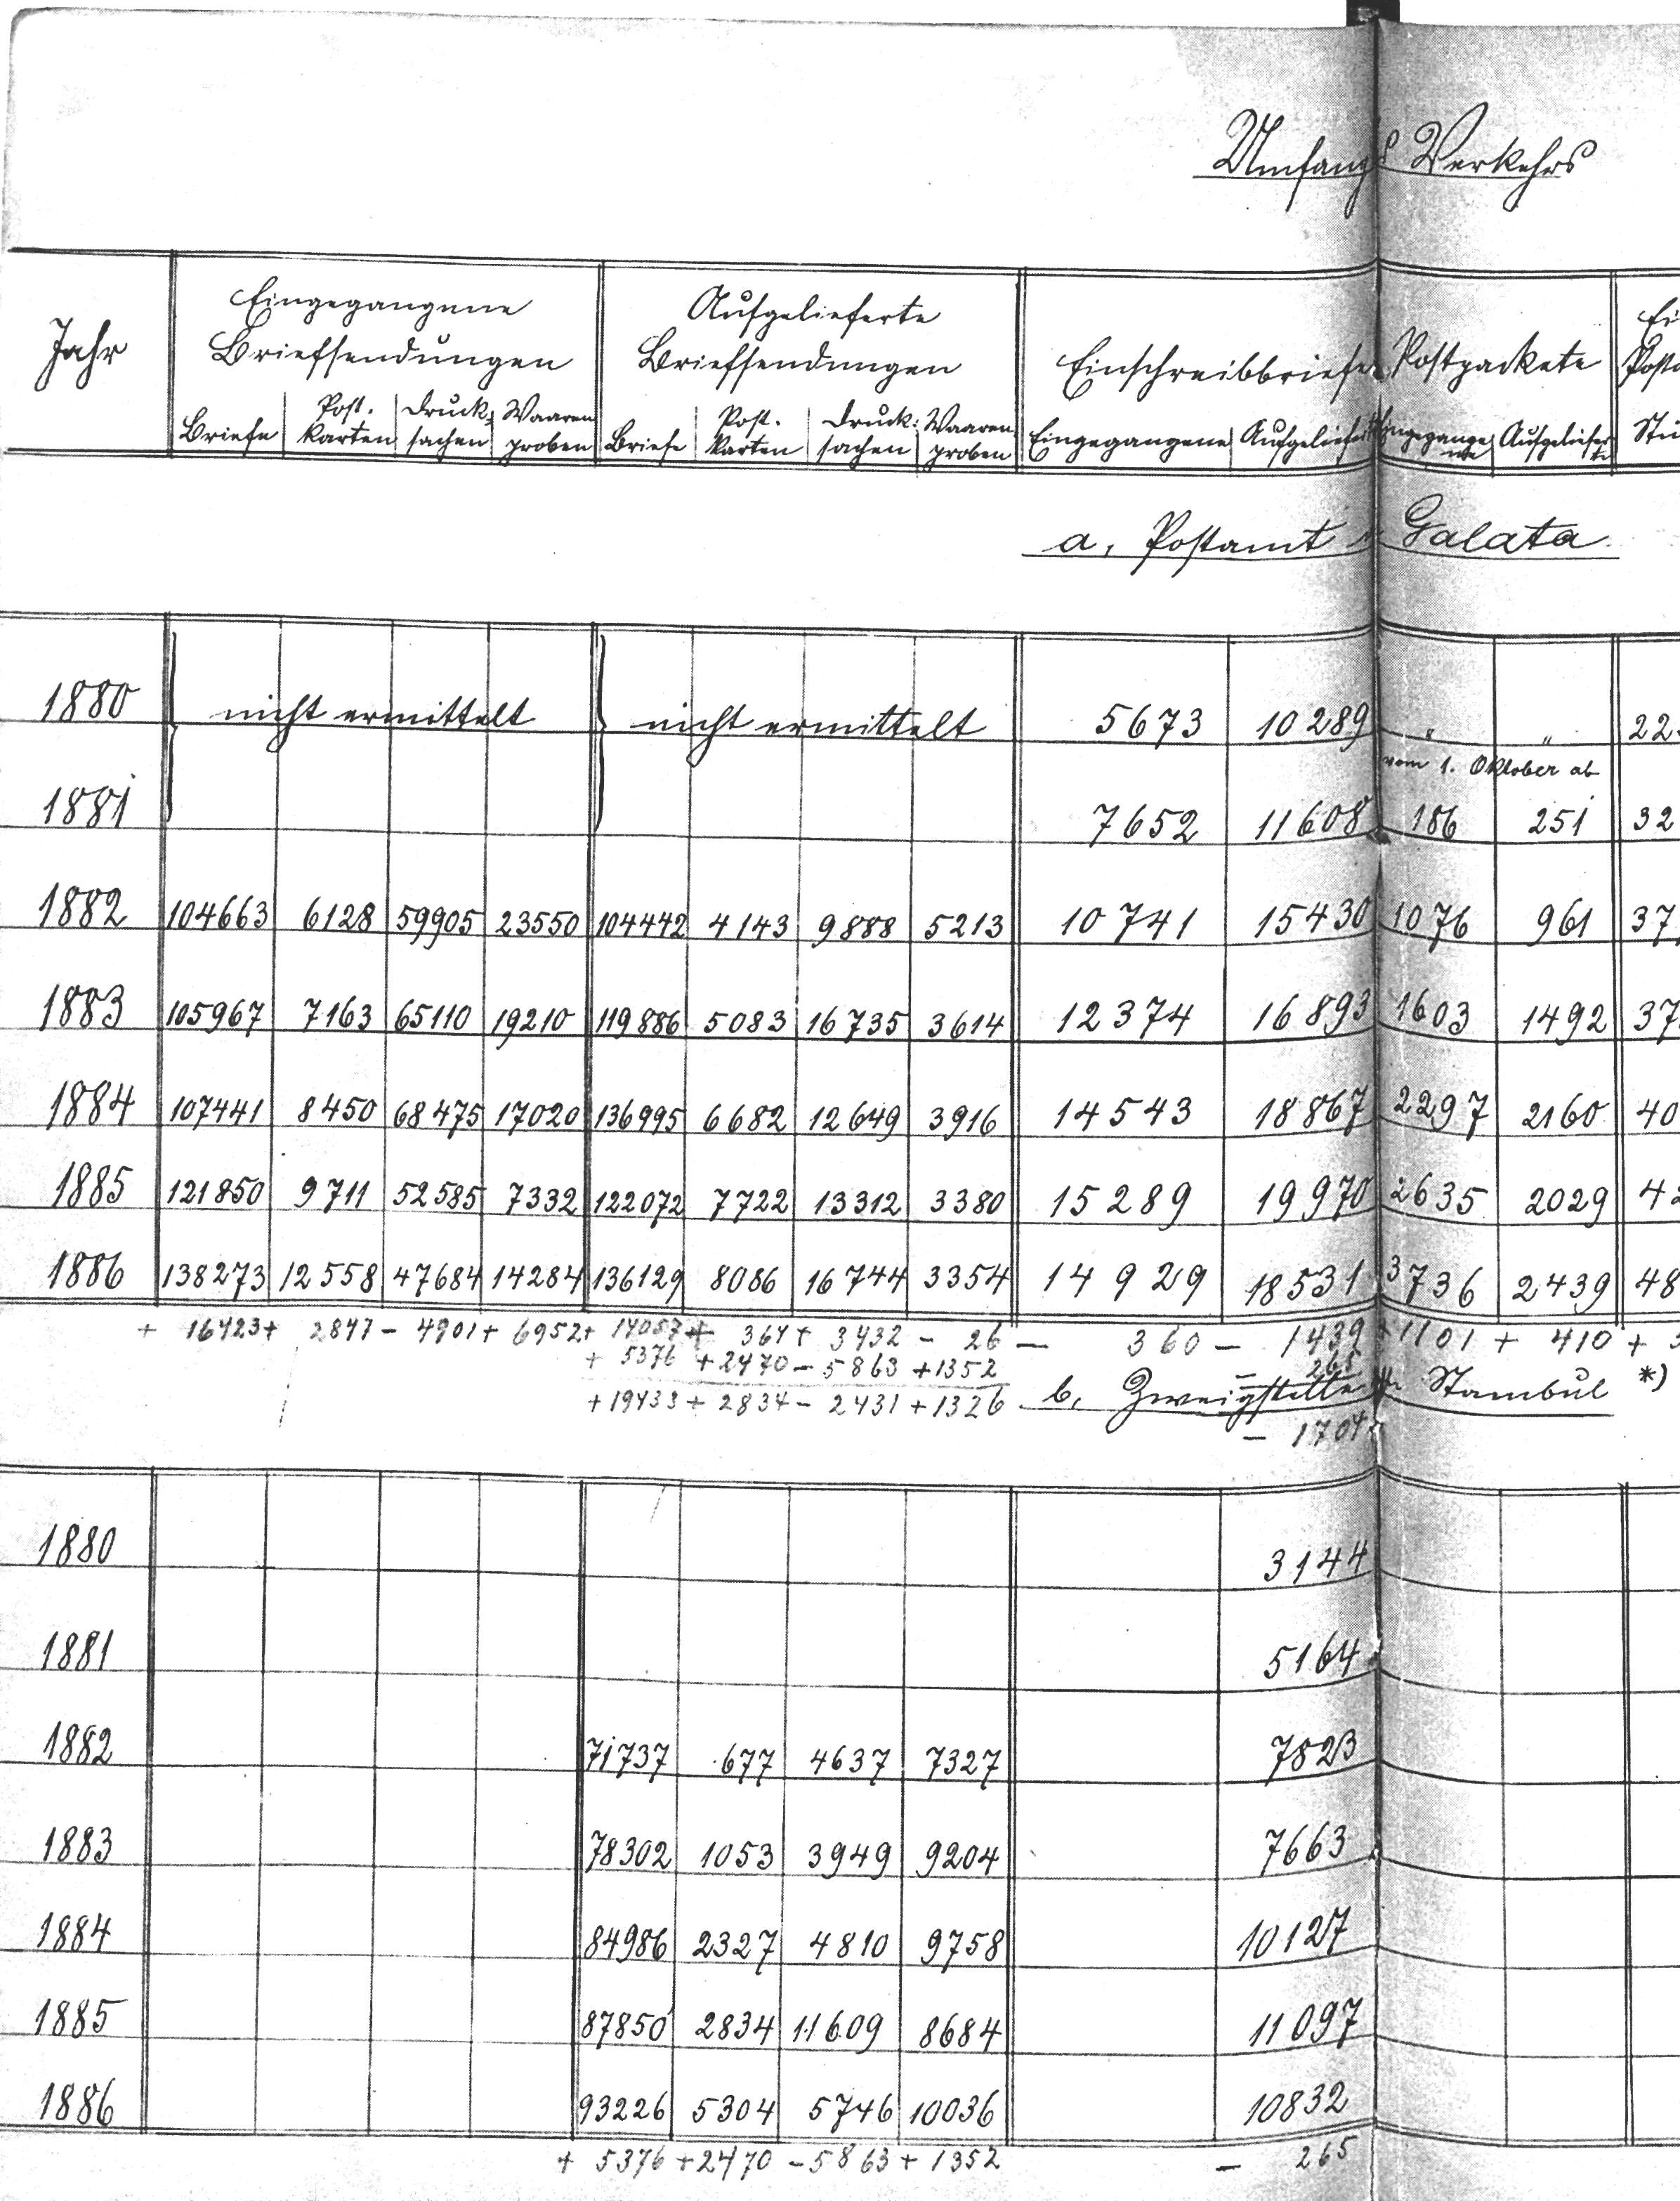 Umfang Verkehrs
Jahr
Eingegangene Briefsendungen
Aufgelieferte Briefsendungen
Einschreibbriefe
Postpackete
Briefe | Post-karten | Druck-sachen | Waaren proben | Briefe | Post-karten | Druck-sachen | Waaren proben | Eingegangene | Aufgeliefer | Eingegange ne | Aufgeliefer te
a, Postamt Galata
1880 nicht ermittelt nicht ermittelt 5673 10289 " " 22
vom 1. Oktober ab
1881 7652 11608 186 251 32
1882 104663 6128 59905 23550 104442 4143 9888 5213 10741 15430 1076 961 37
1883 105967 7163 65110 19210 119886 5083 16735 3614 12374 16893 1603 1492 37
1884 107441 8450 68475 17020 136995 6682 12649 3916 14543 18867 2297 2160 40
1885 121850 9711 52585 7332 122072 7722 13312 3380 15289 19970 2635 2029 42
1886 138273 12558 47684 14284 136129 8086 16744 3354 14929 18531 3736 2439 48
+ 16423 + 2847 - 4901 + 6952 + 14057 + 364 + 3432 - 26 - 360 - 1439 + 1101 + 410 +
+ 5376 + 2470 - 5863 + 1352 - 265
+ 19433 + 2834 - 2431 + 1326 - 1704
b, Zweigstelle Stambul *)
1880 3144
1881 5164
1882 71737 677 4637 7327 7823
1883 78302 1053 3949 9204 7663
1884 84986 2327 4810 9758 10127
1885 87850 2834 11609 8684 11097
1886 93226 5304 5746 10036 10832
+ 5376 + 2470 - 5863 + 1352 - 265